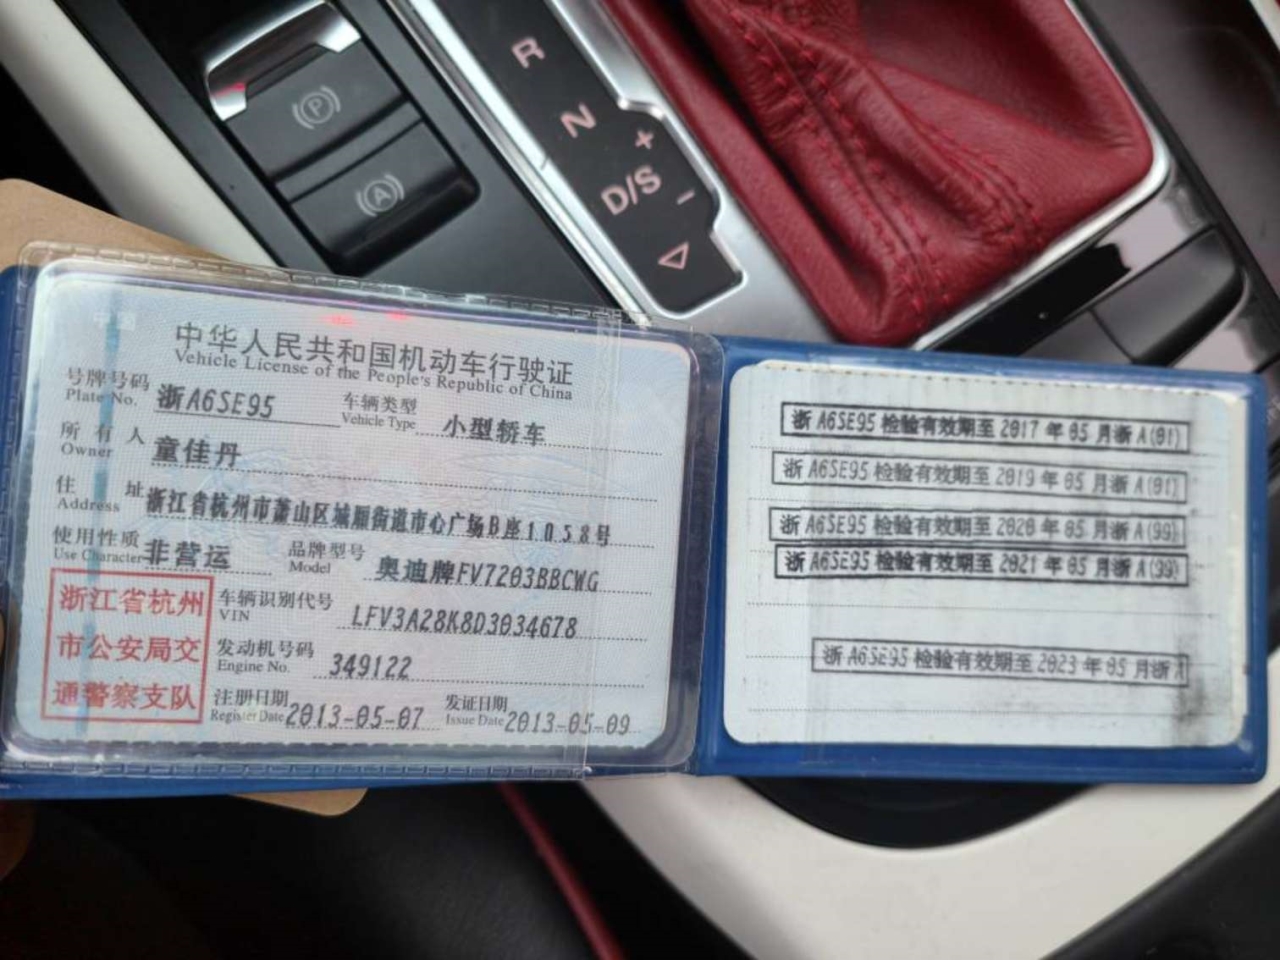 R
N
+
D/S
-
P
A
中华人民共和国机动车行驶证
Vehicle License of the People's Republic of China
号牌号码 浙A6SE95 车辆类型 小型轿车
Plate No. Vehicle Type
所有人 童佳丹
Owner
住址 浙江省杭州市萧山区城厢街道市心广场B座1058号
Address
使用性质 非营运 品牌型号 奥迪牌FV7203BBCWG
Use Character Model
浙江省杭州
市公安局交
通警察支队
车辆识别代号 LFV3A28K8D3034678
VIN
发动机号码 349122
Engine No.
注册日期 2013-05-07 发证日期 2013-05-09
Register Date Issue Date
浙A6SE95检验有效期至2017年05月浙A(01)
浙A6SE95检验有效期至2019年05月浙A(01)
浙A6SE95检验有效期至2020年05月浙A(99)
浙A6SE95检验有效期至2021年05月浙A(99)
浙A6SE95检验有效期至2023年05月浙A